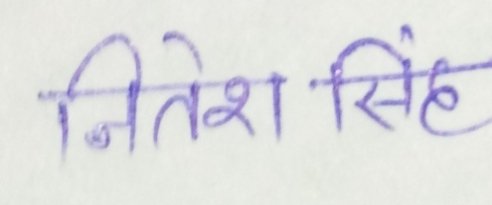 नितेश सिंह